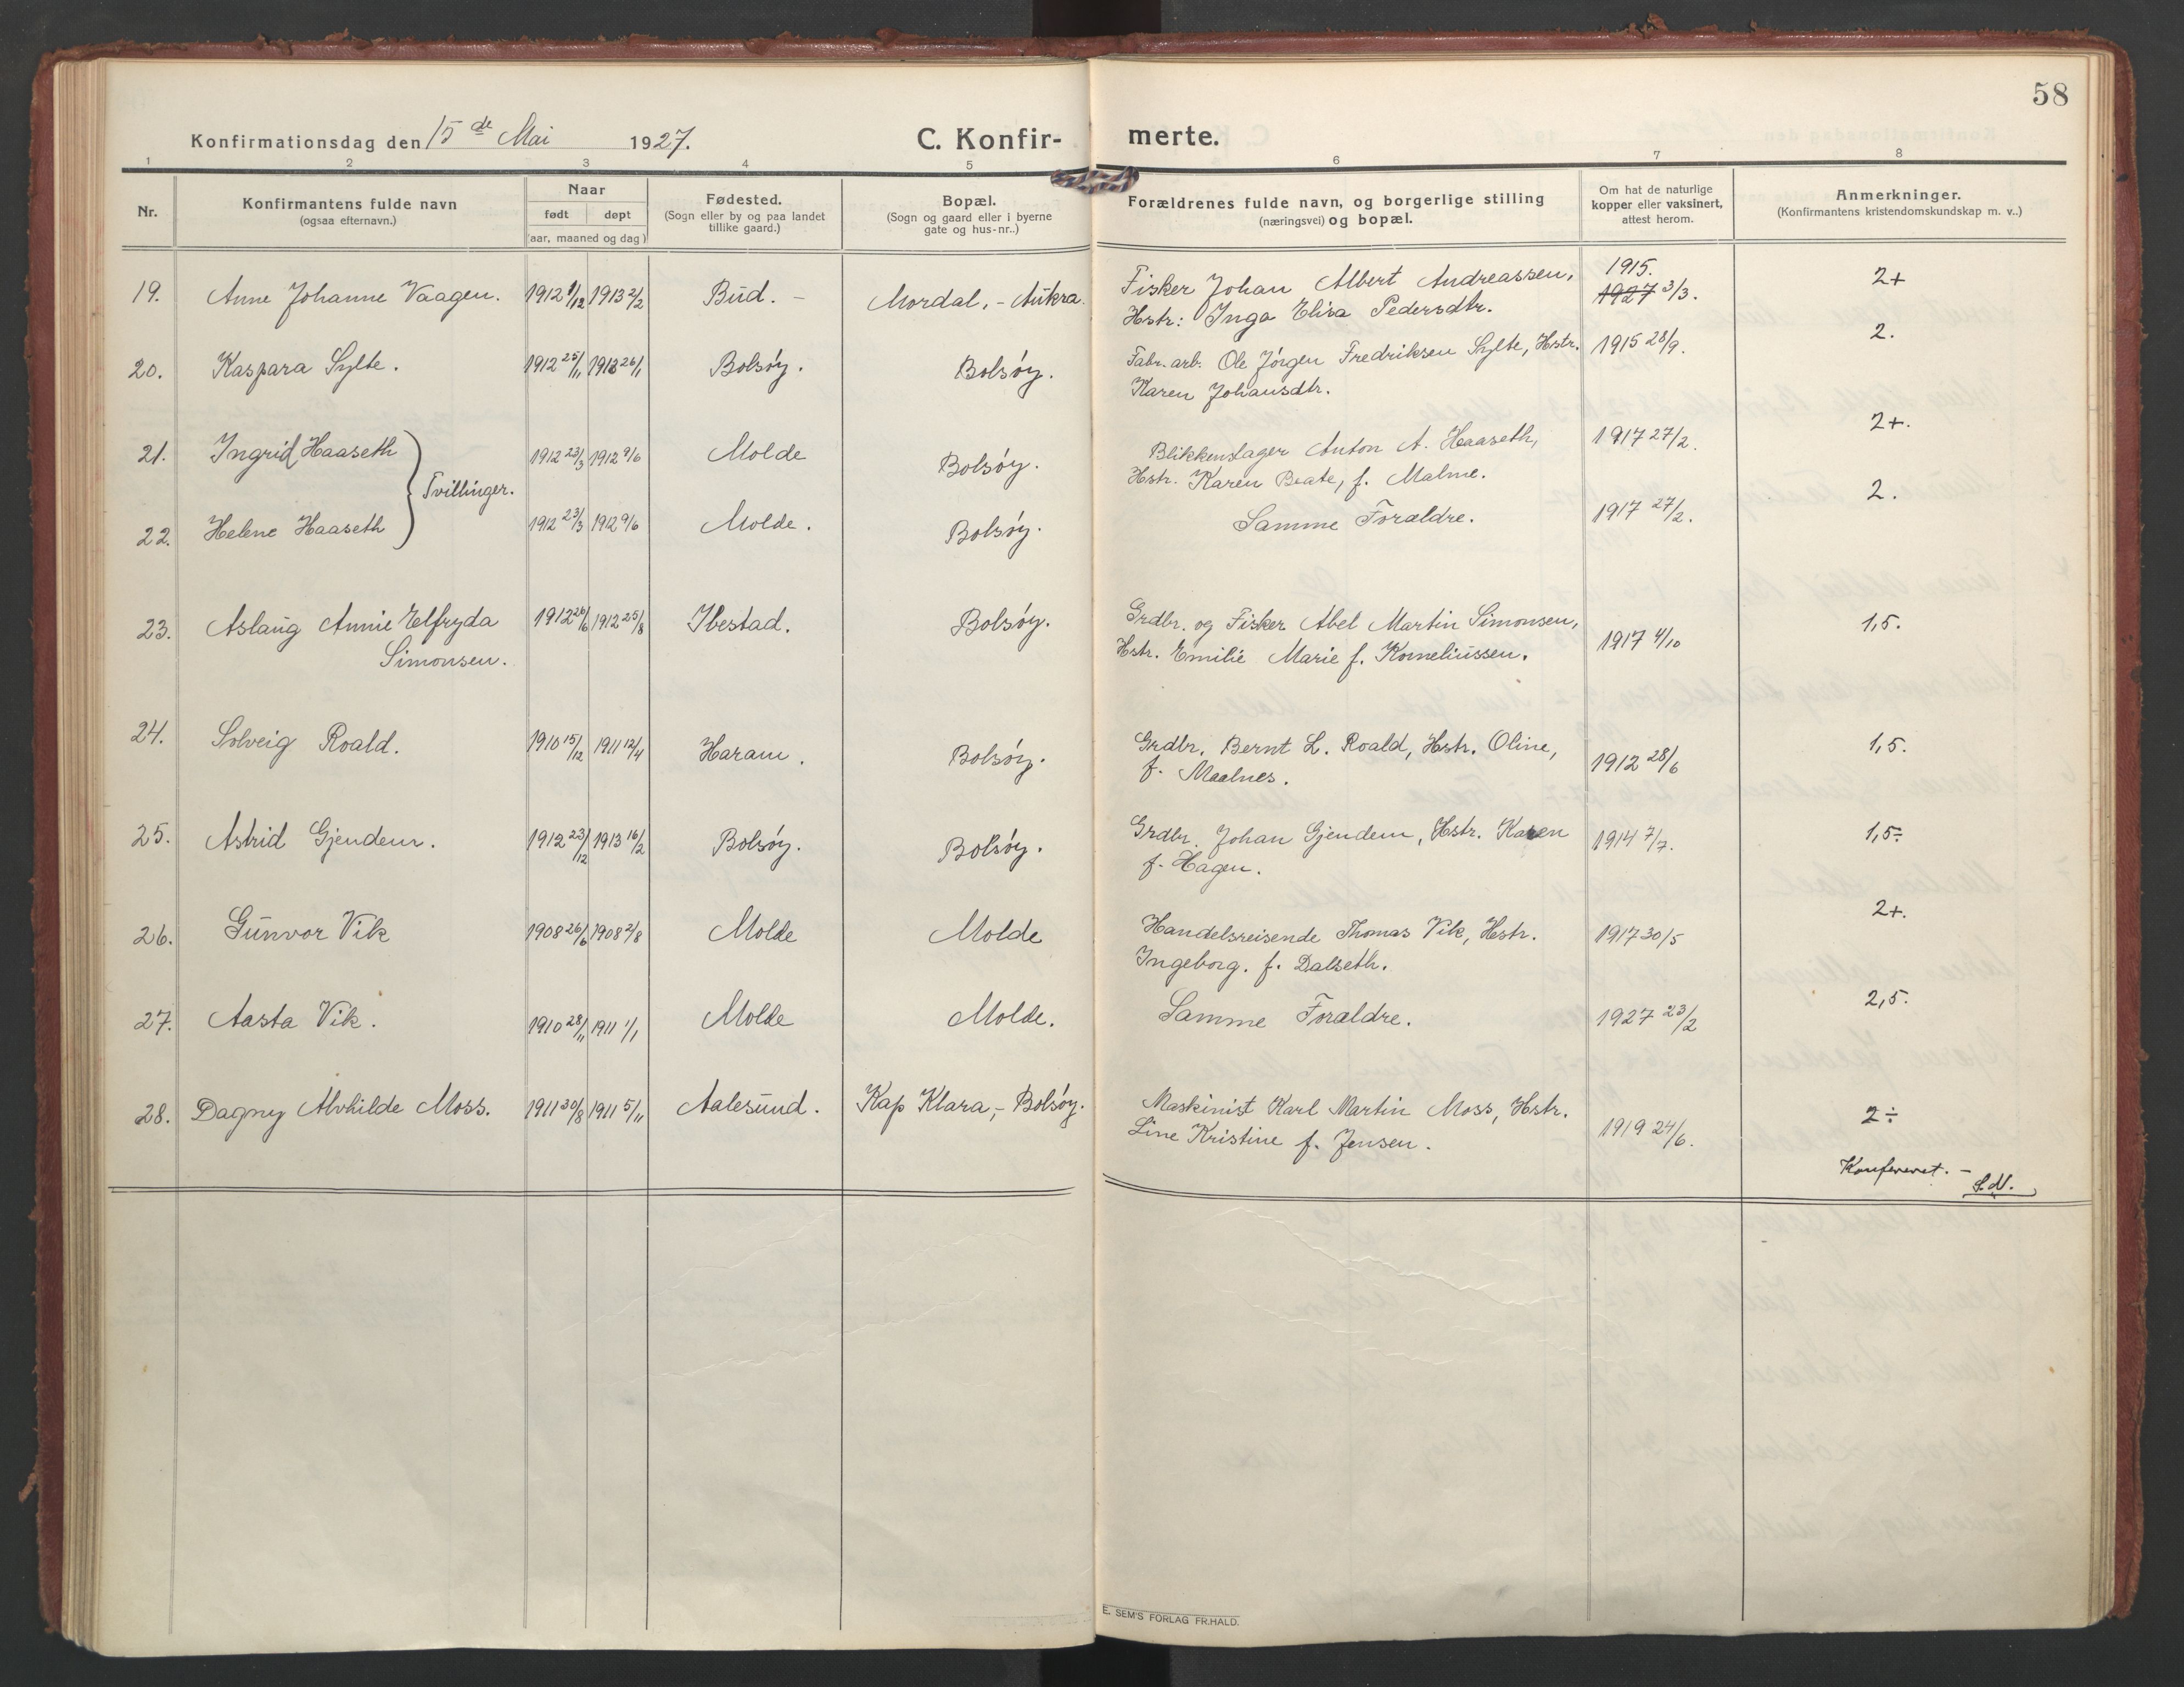 58
Konfirmationsdag den 15 de Mai 1927. C. Konfir- merte.
1 2 3 4 5 6 7 8
Nr.
Konfirmantens fulde navn
(ogsaa efternavn.)
Naar
født døpt
(aar, maaned og dag)
Fødested.
(Sogn eller by og paa landet
tillike gaard.)
Bopæl.
(Sogn og gaard eller i byerne
gate og hus-nr..)
Forældrenes fulde navn, og borgerlige stilling
(næringsvei) og bopæl.
Om hat de naturlige
kopper eller vaksinert,
attest herom.
Anmerkninger.
(Konfirmantens kristendomskundskap m. v..)
19. Anne Johanne Vaagen. 1912 1/12 1913 2/2 Bud. - Mordal, - Aukra. Fisker Johan Albert Andreassen, 1915. 2+
Hstr: Inga Elisa Pedersdtr. 1927 3/3.
20. Kaspara Sylte. 1912 25/11 1913 26/1 Bolsøy. Bolsøy. Fabr. arb. Ole Jørgen Fredriksen Sylte, Hstr. 1915 28/9. 2.
Karen Johansdtr.
21. Ingrid Haaseth 1912 23/3 1912 9/6 Molde Bolsøy. Blikkenslager Anton A. Haaseth, 1917 27/2. 2+.
Tvillinger. Hstr. Karen Beate, f. Malme.
22. Helene Haaseth 1912 23/3 1912 9/6 Molde. Bolsøy. Samme Forældre. 1917 27/2. 2.
23. Aslaug Annie Elfryda 1912 26/6 1912 25/8 Ibestad. Bolsøy. Grdbr. og Fisker Abel Martin Simonsen, 1917 4/10 1,5.
Simonsen. Hstr. Emilie Marie f. Korneliussen.
24. Solveig Roald. 1910 15/12 1911 12/4 Haram. Bolsøy. Grdbr. Bernt L. Roald, Hstr. Oline, 1912 28/6 1,5.
f. Maalnes.
25. Astrid Gjendem. 1912 23/12 1913 16/2 Bolsøy. Bolsøy. Grdbr. Johan Gjendem, Hstr. Karen 1914 7/7. 1,5÷
f. Hagen.
26. Gunvor Vik 1908 26/6 1908 2/8 Molde Molde Handelsreisende Thomas Vik, Hstr. 1917 30/5 2+.
Ingeborg. f. Dalseth.
27. Aasta Vik. 1910 28/11 1911 1/1 Molde Molde. Samme Forældre. 1927 23/2 2,5.
28. Dagny Alvhilde Moss. 1911 30/8 1911 5/11 Aalesund. Kap Klara, - Bolsøy. Maskinist Karl Martin Moss, Hstr. 1919 24/6. 2÷
Line Kristine f. Jensen.
Konfereret. -
S.N.
E. SEM'S FORLAG FR.HALD.